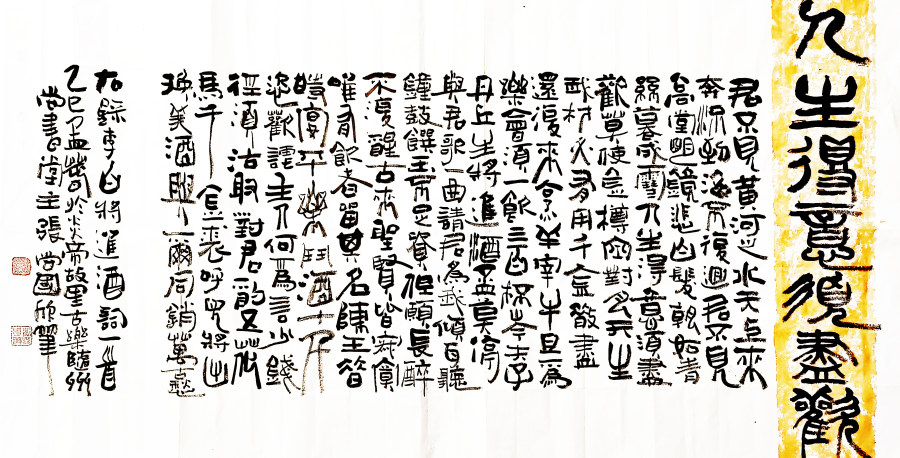 人生得意須盡歡
君不見黃河之水天上來
奔流到海不復迴君不見
高堂明鏡悲白髮朝如青
絲暮成雪人生得意須盡
歡莫使金樽空對月天生
我材必有用千金散盡
還復來烹羊宰牛且為
樂會須一飲三百杯岑夫子
丹丘生將進酒杯莫停
與君歌一曲請君為我傾耳聽
鐘鼓饌玉不足貴但願長醉
不復醒古來聖賢皆寂寞
唯有飲者留其名陳王昔
時宴平樂鬥酒十千
恣歡謔主人何為言少錢
徑須沽取對君酌五花
馬千金裘呼兒將出
換美酒與爾同銷萬古愁
右錄李白將進酒詩一首
乙巳孟春於炎帝故里古樂隨州
尚書堂主張尚國欣筆